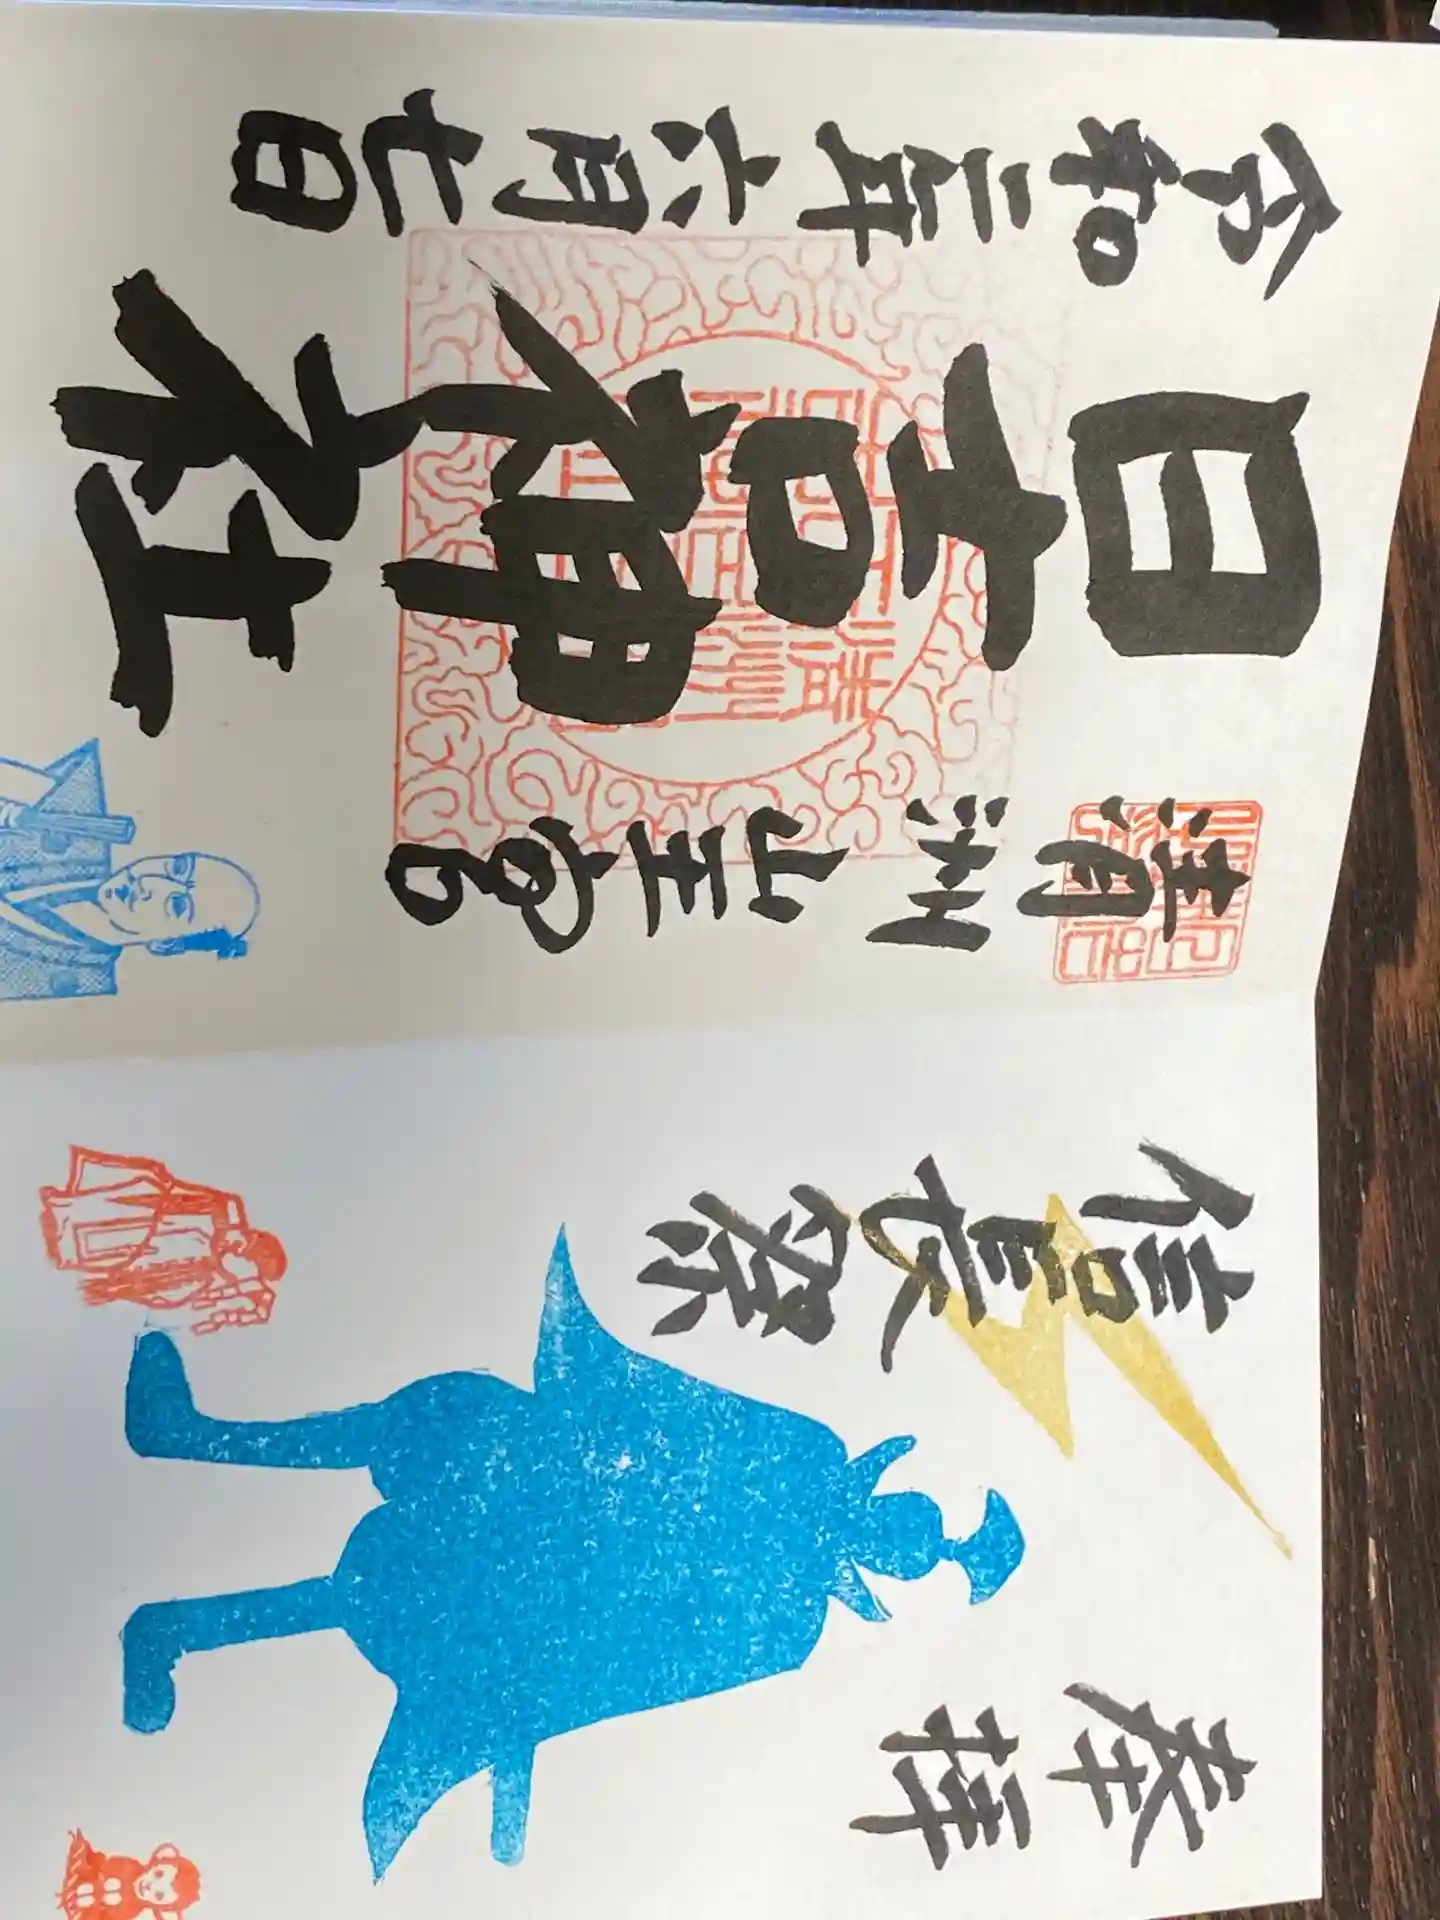 奉拝
信長祭
清洲山王宮
日吉神社
令和二年六月七日